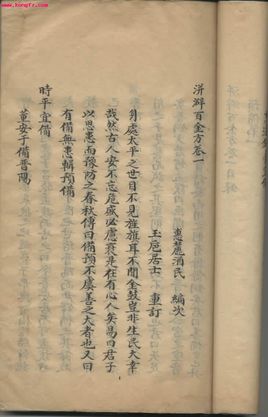 www.kongfz.com
洴澼百金方卷一
惠麓酒民 編次
玉巵居士 重訂
身處太平之世目不見旌旗耳不聞金鼓豈非生民大幸
哉然古人安不忘危盛必慮衰是在有心人矣易曰君子
以思患而豫防之春秋傳曰備預不虞善之大者也又曰
有備無患輯預備
時平宜備
董安于備晉陽